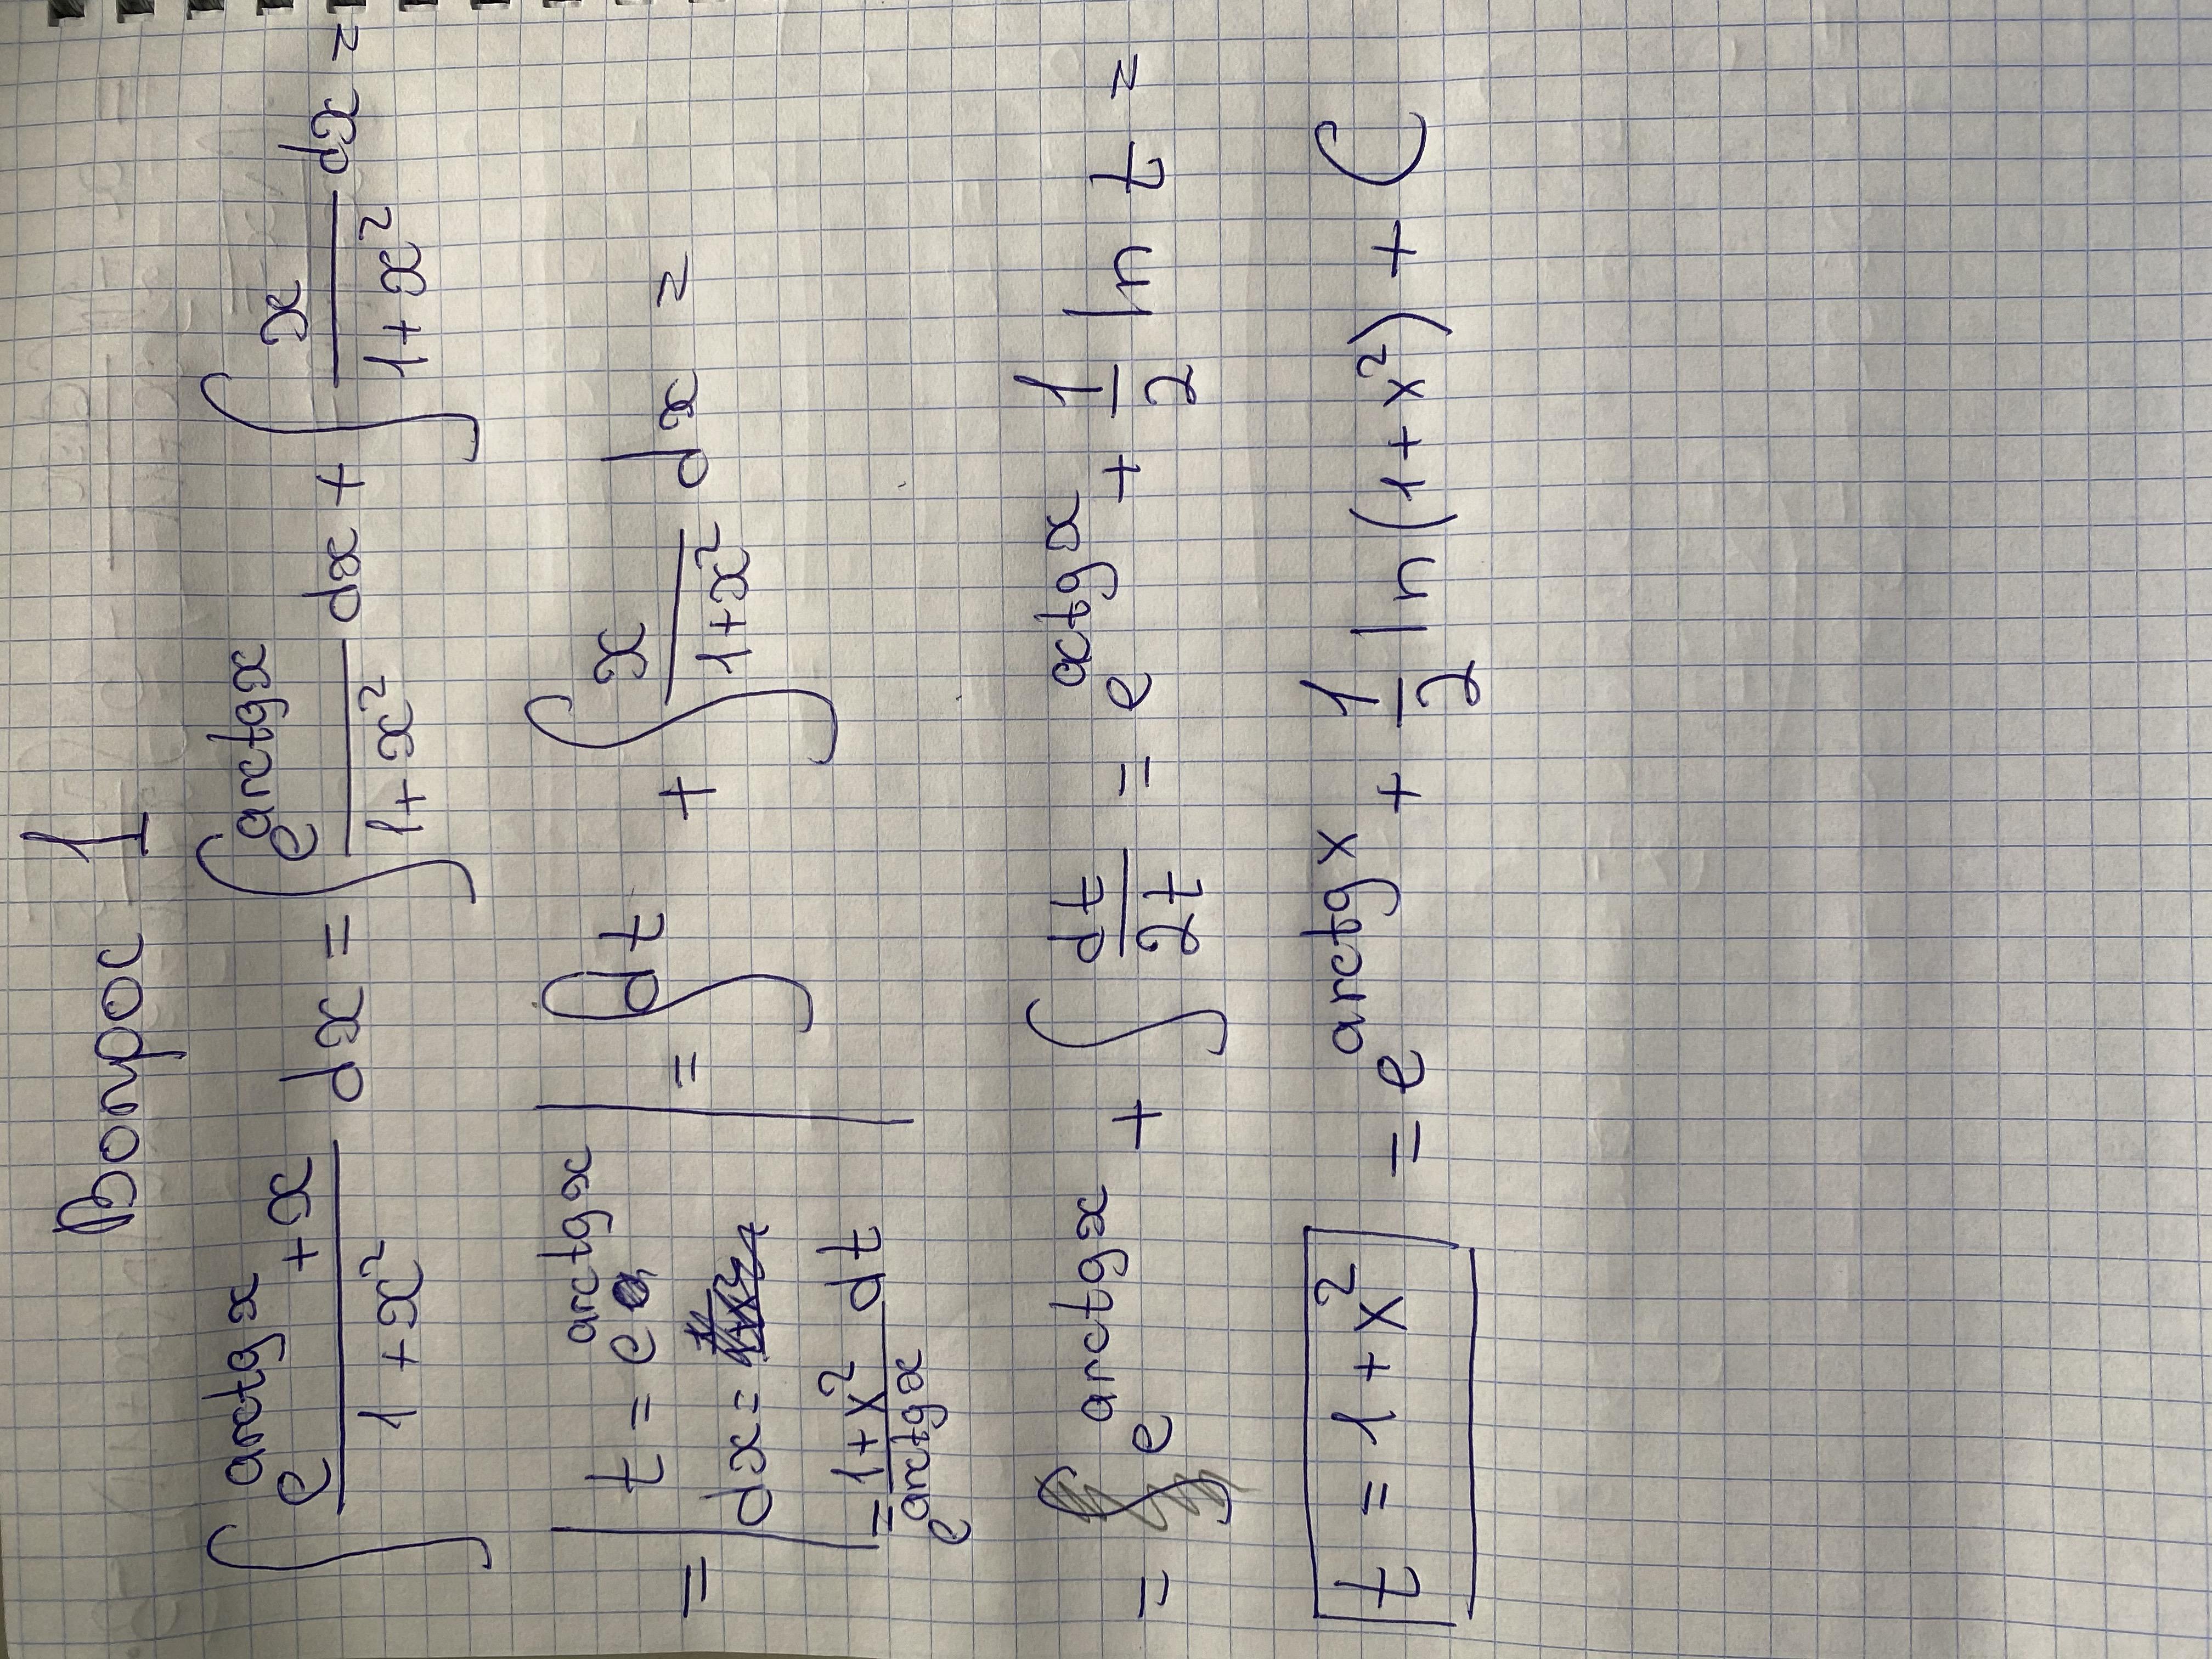 Вопрос 1
∫ (e^{arctg x} + x)/(1 + x²) dx = ∫ e^{arctg x}/(1 + x²) dx + ∫ x/(1 + x²) dx =
= | t = e^{arctg x} dx = = (1 + x²)/e^{arctg x} dt | = ∫ dt + ∫ x/(1+x²) dx =
= e^{arctg x} + ∫ dt/2t = e^{actg x} + 1/2 ln t =
t = 1 + x² = e^{arctg x} + 1/2 ln(1 + x²) + C